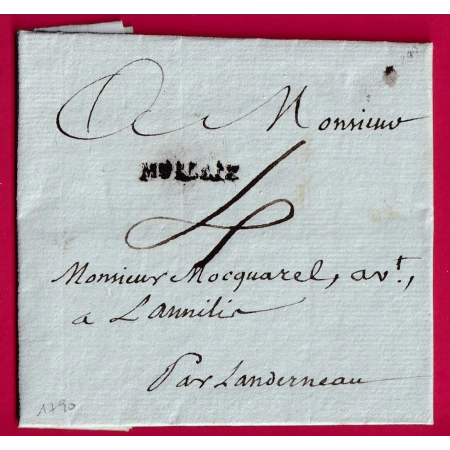 A Monsieur
MORLAIX
4
Monsieur Mocquarel, avt.,
a Lannilis
Par Landerneau
1790